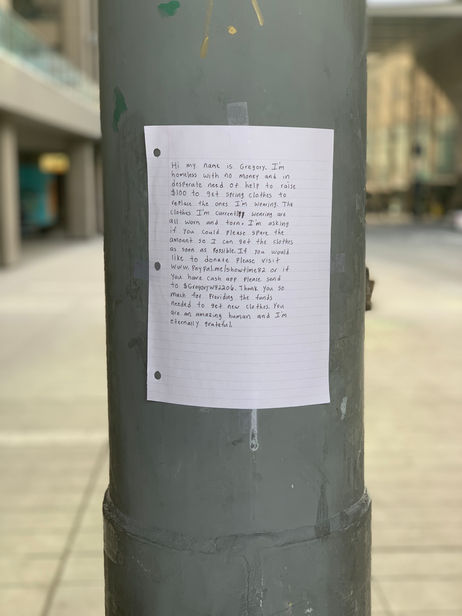 Hi my name is Gregory. I'm
homeless with no money and in
desperate need of help to raise
$100 to get spring clothes to
replace the ones I'm wearing. The
clothes I'm currently wearing are
all worn and torn. I'm asking
if you could please spare the
amount so I can get the clothes
as soon as possible. If you would
like to donate please visit
www.PayPal.me/showtime82 or if
you have cash app please send
to $GregoryW82206. Thank you so
much for providing the funds
needed to get new clothes. You
are an amazing human and I'm
eternally grateful.